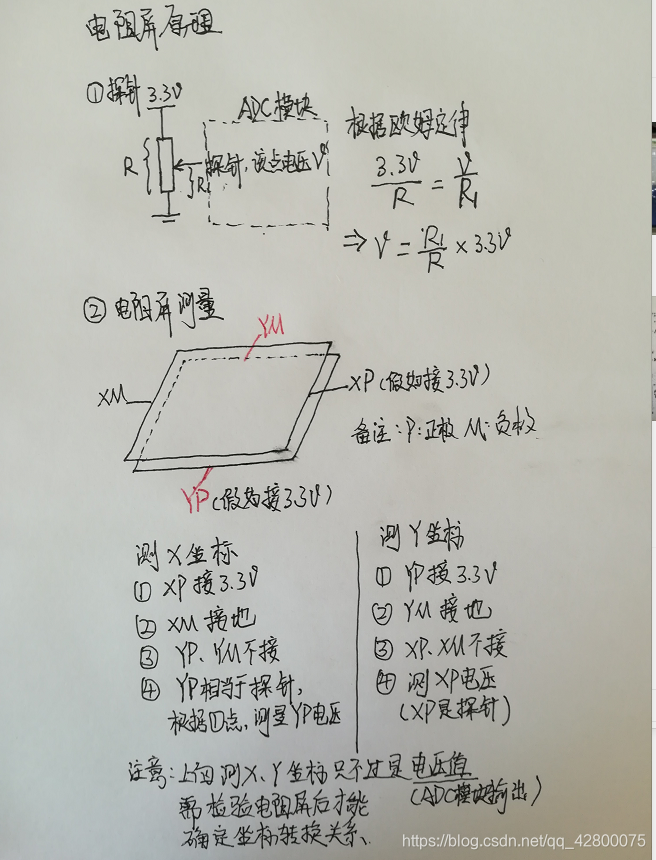 电阻屏原理
①探针 3.3V
ADC模块
R
R1
探针,该点电压V
根据欧姆定律
3.3V/R = V/R1
⇒ V = R1/R × 3.3V
②电阻屏测量
YM
XM
XP(假如接3.3V)
备注:P:正极 M:负极
YP(假如接3.3V)
测X坐标
① XP接3.3V
② XM接地
③ YP、YM不接
④ YP相当于探针,
根据①点,测量YP电压
测Y坐标
① YP接3.3V
② YM接地
③ XP、XM不接
④ 测XP电压
(XP是探针)
注意:上面测X、Y坐标只不过是电压值
(ADC模块输出)
需检验电阻屏后才能
确定坐标转换关系、
https://blog.csdn.net/qq_42800075